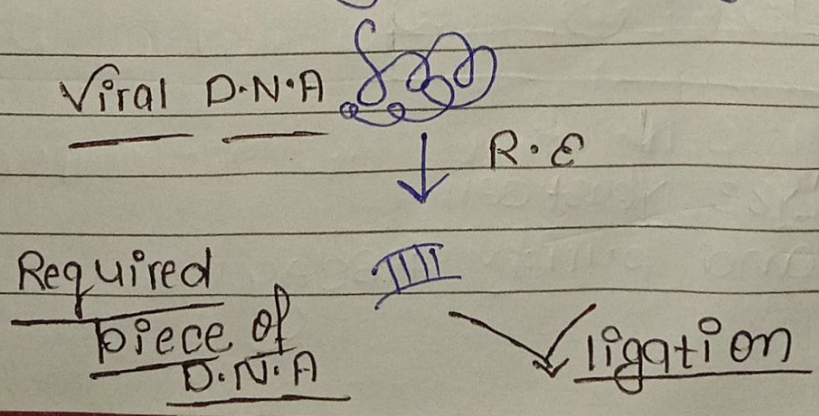 Viral D.N.A
R.E
Required
piece of
D.N.A
ligation